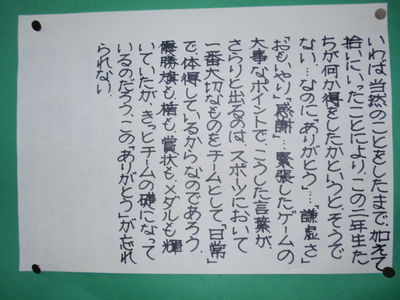 いわば当然のことをしたまで。加えて
拾いにいったことにより、この二年生た
ちが何か得をしたかというと、そうで
ない…なのに「ありがとう」…「謙虚さ」
「おもいやり」「感謝」…緊張したゲームの
大事なポイントで、こうした言葉が、
さらりと出るのは、スポーツにおいて
一番大切なものをチームとして、「日常」
で体得しているからなのであろう。
優勝旗も楯も、賞状も、メダルも輝
いていたが、きっとチームの礎になって
いるのだろう、この「ありがとう」が忘れ
られない。